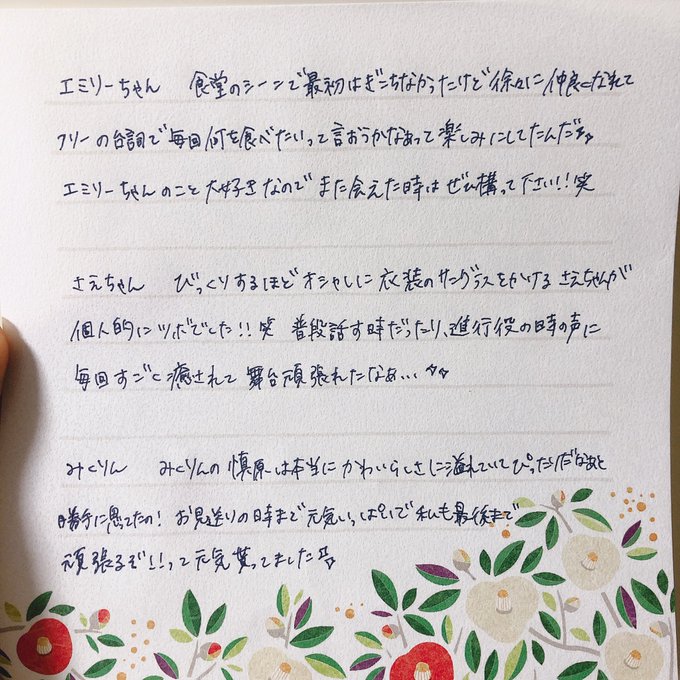 エミリーちゃん 食堂のシーンで最初はぎこちなかったけど徐々に仲良くなれて
フリーの台詞で毎回何を食べたいって言おうかなあって楽しみにしてたんだ☆
エミリーちゃんのこと大好きなのでまた会えた時はぜひ構って下さい!!笑
さえちゃん びっくりするほどオシャレに衣装のサングラスをかけるさえちゃんが
個人的にツボでした!!笑 普段話す時だったり、進行役の時の声に
毎回すごく癒されて舞台頑張れたなぁ…☆☆
みくりん みくりんの慎原は本当にかわいらしさに溢れていてぴったりだなあと
勝手に思ってたの! お見送りの時まで元気いっぱいで私も最後まで
頑張るぞ!!って元気貰ってました☆